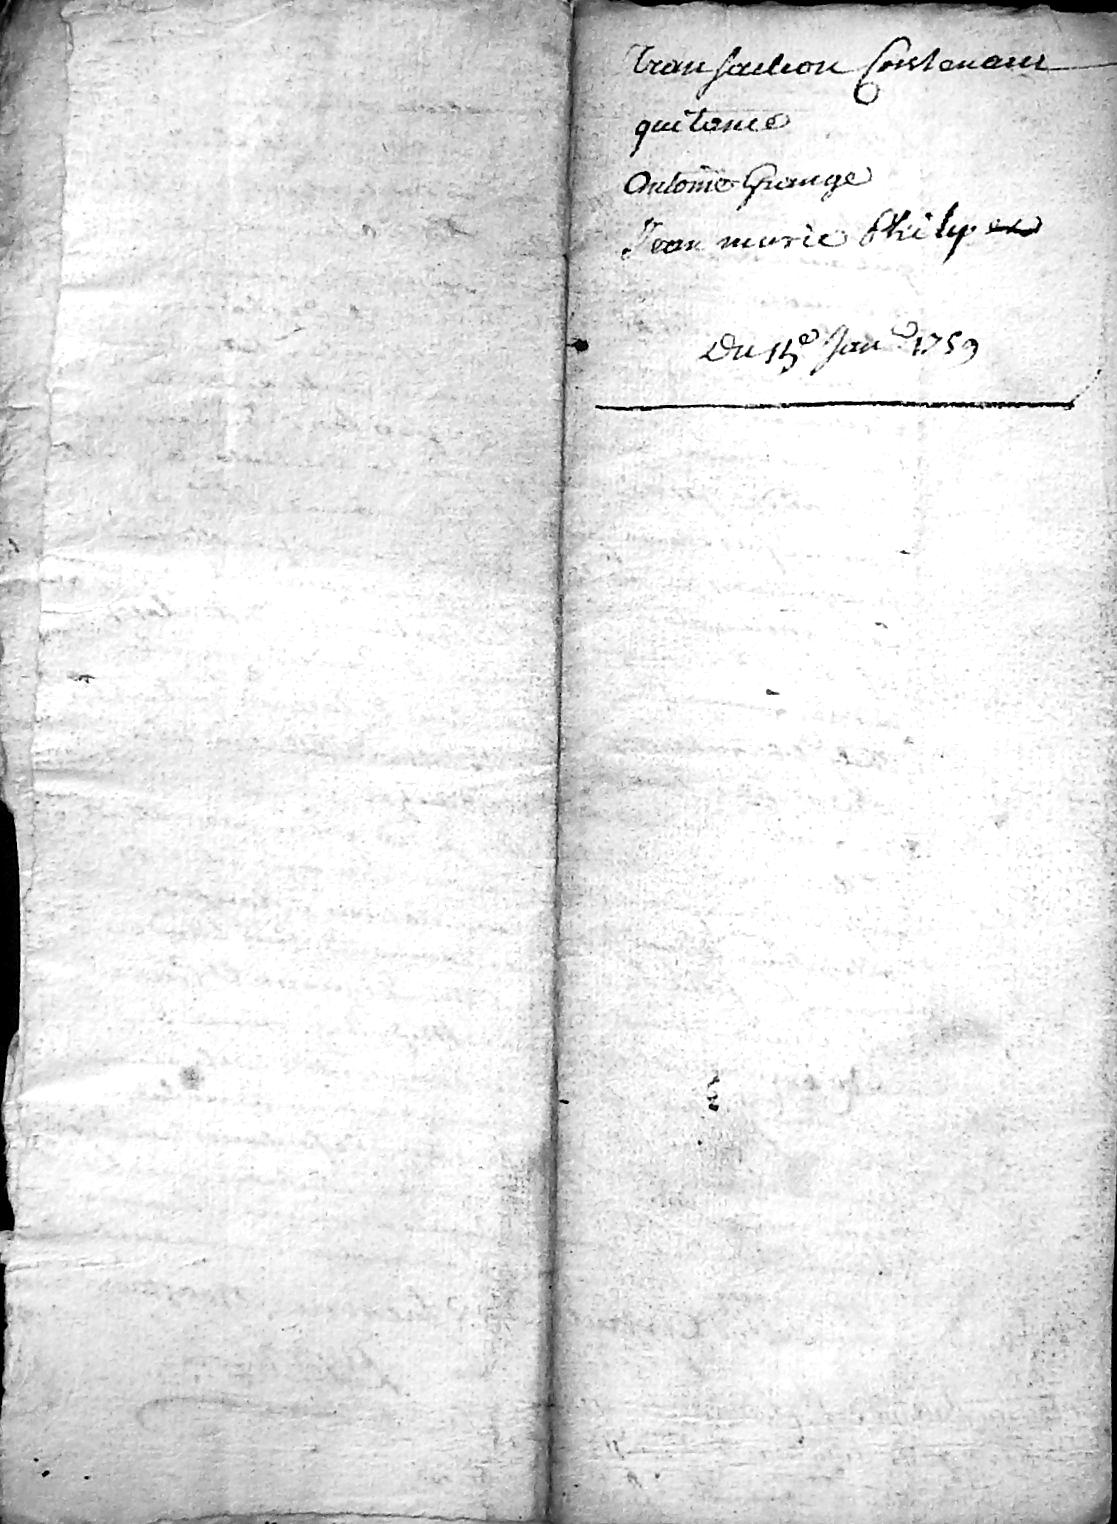 Transaction Contenant
quitance
Antoine Grange
Jean marie Philip
Du 15e Janer 1759